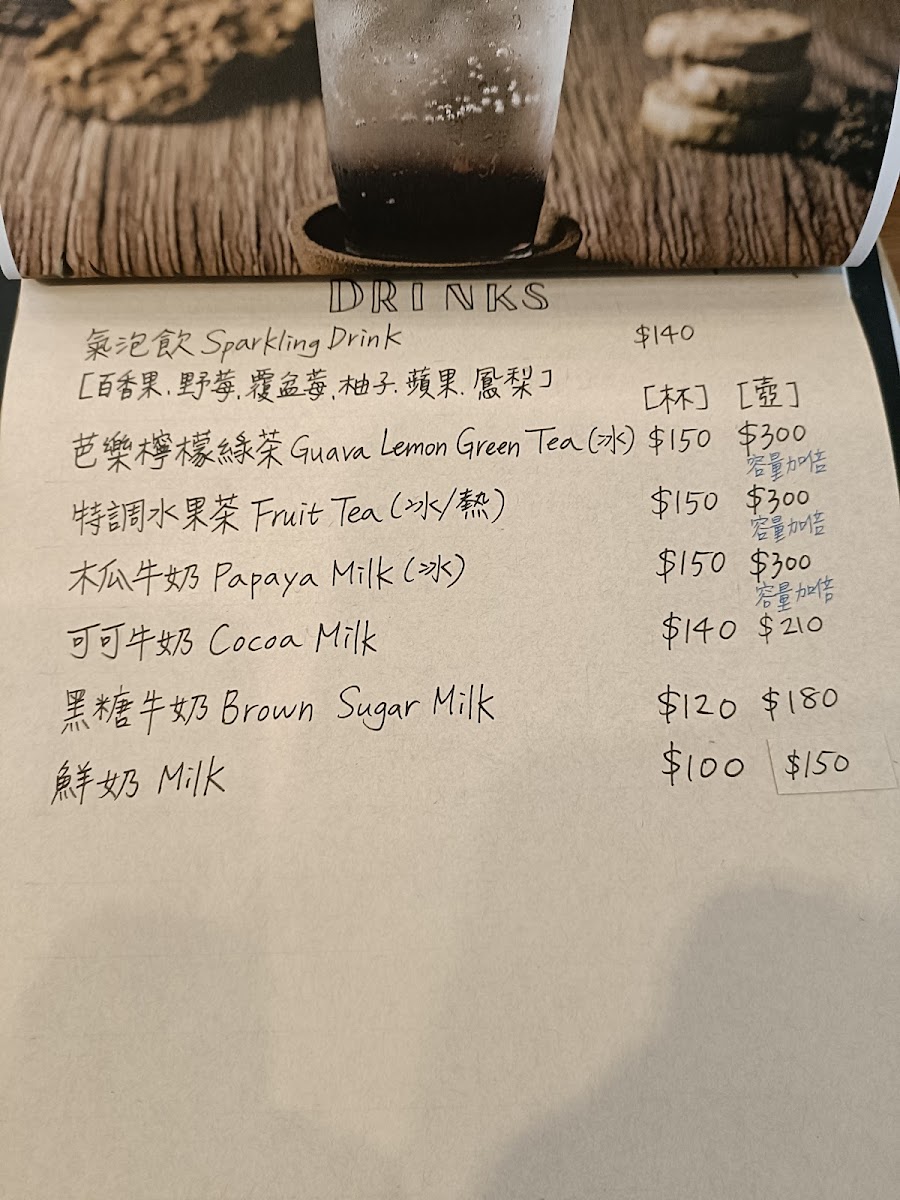 DRINKS
氣泡飲 Sparkling Drink $140
[百香果.野莓.覆盆莓.柚子.蘋果.鳳梨]
[杯] [壺]
芭樂檸檬綠茶 Guava Lemon Green Tea (冰) $150 $300
容量加倍
特調水果茶 Fruit Tea (冰/熱) $150 $300
容量加倍
木瓜牛奶 Papaya Milk (冰) $150 $300
容量加倍
可可牛奶 Cocoa Milk $140 $210
黑糖牛奶 Brown Sugar Milk $120 $180
鮮奶 Milk $100 $150